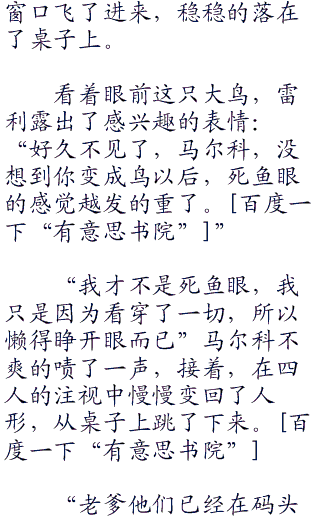 窗口飞了进来，稳稳的落在
了桌子上。
看着眼前这只大鸟，雷
利露出了感兴趣的表情：
“好久不见了，马尔科，没
想到你变成鸟以后，死鱼眼
的感觉越发的重了。[百度一
下“有意思书院”]”
“我才不是死鱼眼，我
只是因为看穿了一切，所以
懒得睁开眼而已”马尔科不
爽的啧了一声，接着，在四
人的注视中慢慢变回了人
形，从桌子上跳了下来。[百
度一下“有意思书院”]
“老爹他们已经在码头